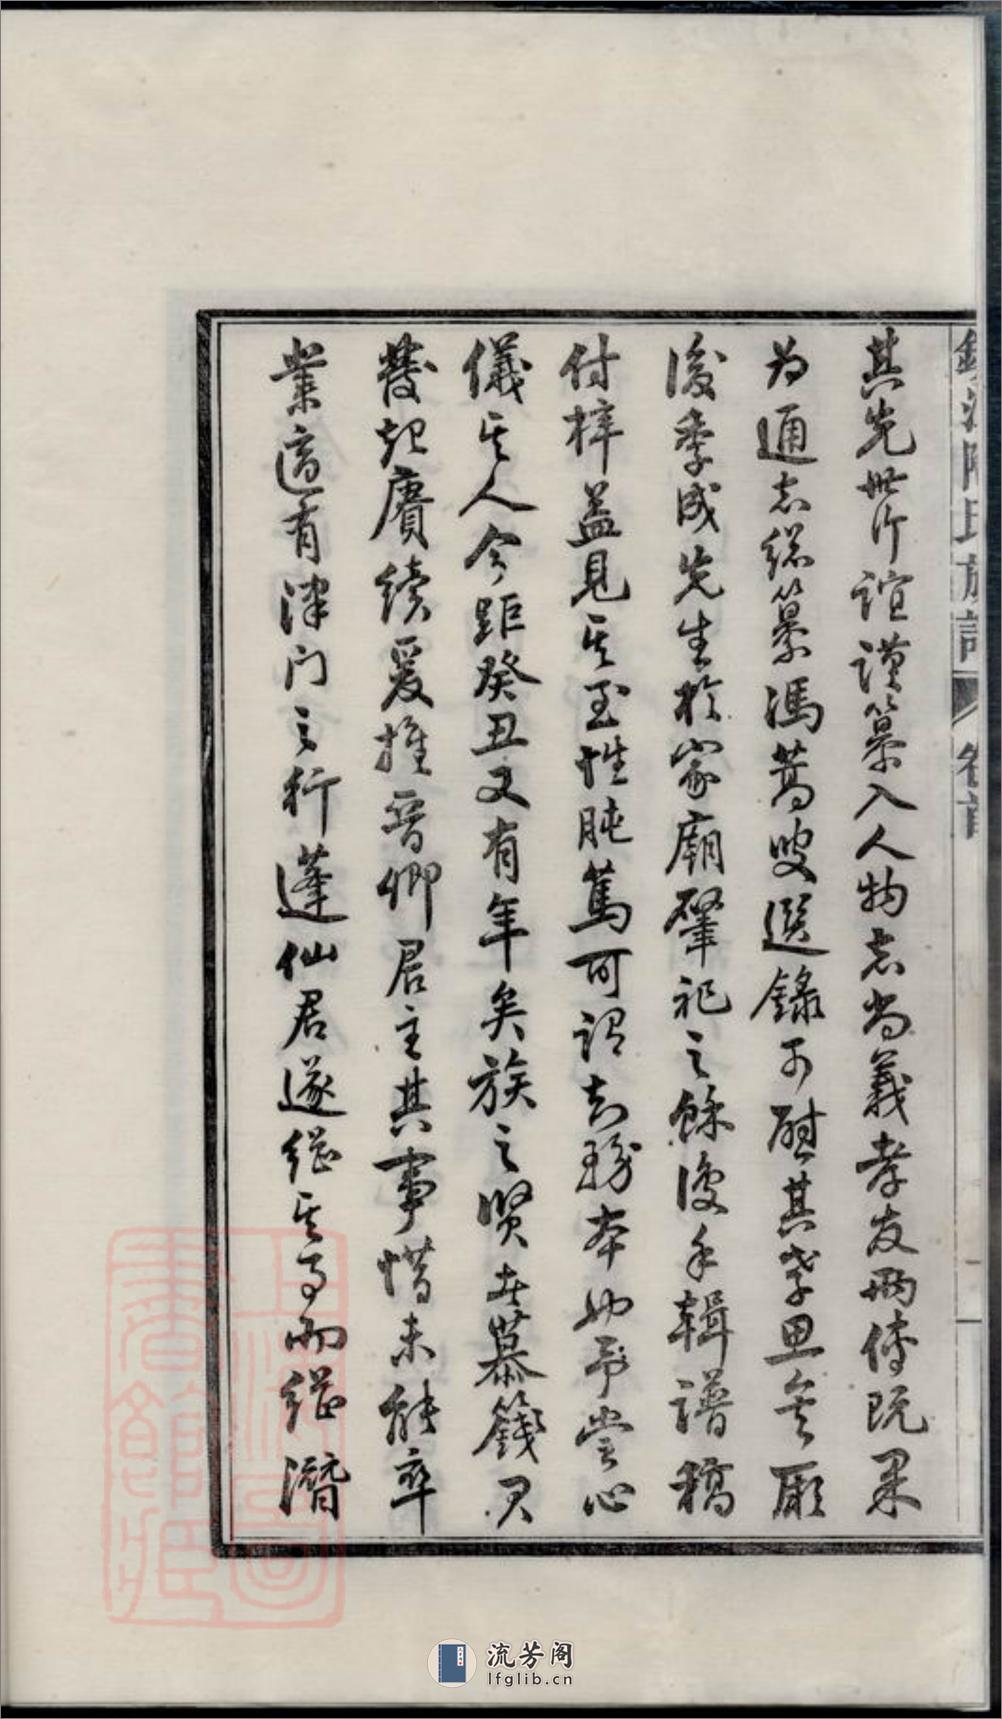 其先世行誼謹纂入人物志尚義孝友兩傳既果
为通志總纂馮蒿叟選錄可慰其孝思矣厥
後季成先生於家廟肇祀之餘復手輯譜稿
付梓益見其至性肫篤可謂知務本如予嘗心
儀其人今距癸丑又有年矣族之賢者慕籛君
發起賡續爰推晉卿君主其事惜未能卒
業適有津门之行蓬仙君遂繼其事而繼潛
陳氏族譜 卷首
流芳阁
lfglib.cn